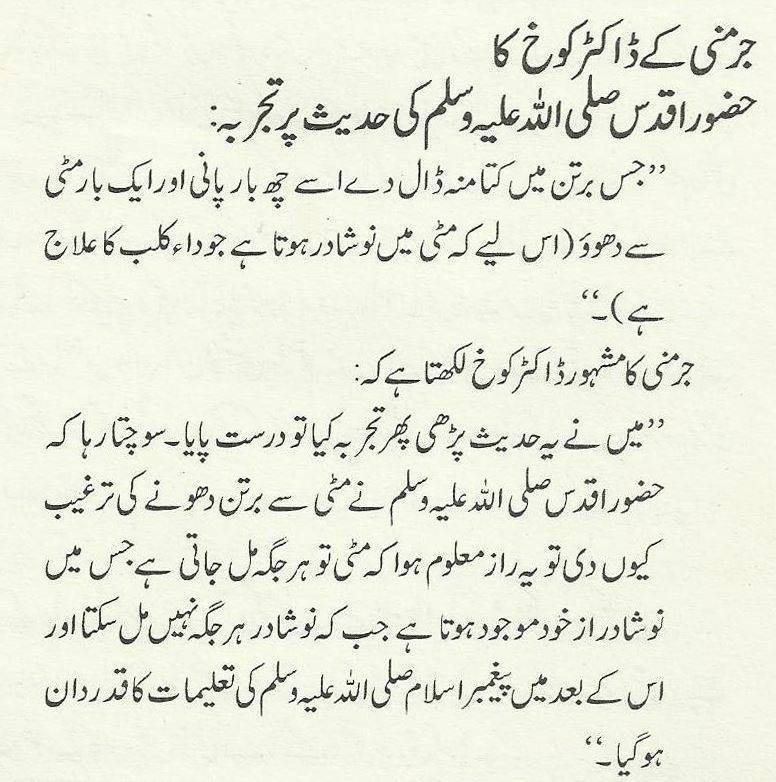 جرمنی کے ڈاکٹر کوخ کا
حضور اقدس صلی اللہ علیہ وسلم کی حدیث پر تجربہ:
’’جس برتن میں کتا منہ ڈال دے اسے چھ بار پانی اور ایک بار مٹی
سے دھوؤ (اس لیے کہ مٹی میں نوشادر ہوتا ہے جو داء کلب کا علاج
ہے)۔‘‘
جرمنی کا مشہور ڈاکٹر کوخ لکھتا ہے کہ:
’’میں نے یہ حدیث پڑھی پھر تجربہ کیا تو درست پایا۔ سوچتا رہا کہ
حضور اقدس صلی اللہ علیہ وسلم نے مٹی سے برتن دھونے کی ترغیب
کیوں دی تو یہ راز معلوم ہوا کہ مٹی تو ہر جگہ مل جاتی ہے جس میں
نوشادر از خود موجود ہوتا ہے جب کہ نوشادر ہر جگہ نہیں مل سکتا اور
اس کے بعد میں پیغمبر اسلام صلی اللہ علیہ وسلم کی تعلیمات کا قدردان
ہو گیا۔‘‘